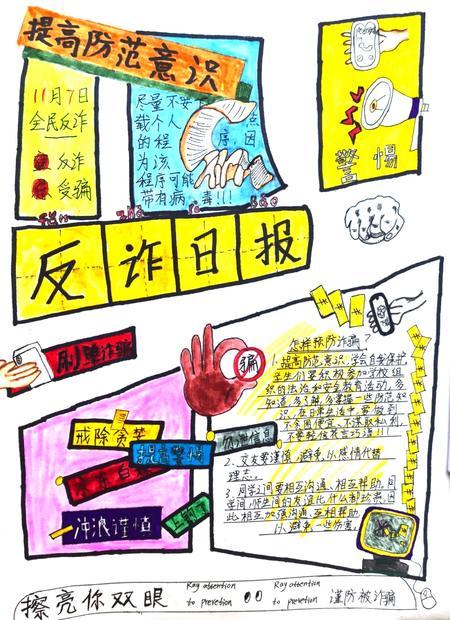 提高防范意识
11月7日
全民反诈
反诈
受骗
尽量不安下
载个人
的程序,因
为该
程序可能
带有病毒!!!
警惕
反诈日报
刷单诈骗
骗
戒除贪婪
提高警惕
冲浪谨慎
怎样预防诈骗?
1.提高防范意识,学会自我保护
学生们要积极参加学校组
织的法治和安全教育活动,多
知道、多了解、多掌握一些防范知
识,在日常生活中,要做到
不贪图便宜、不谋取私利,
2、交友要谨慎,避免以感情代替
理志。
3.同学之间要相互沟通、相互帮助,同
此相互加强沟通、互相帮助
以避免一些伤害。
擦亮你双眼
Ray attention
to prevetion
Ray attention
to prevetion
谨防被诈骗